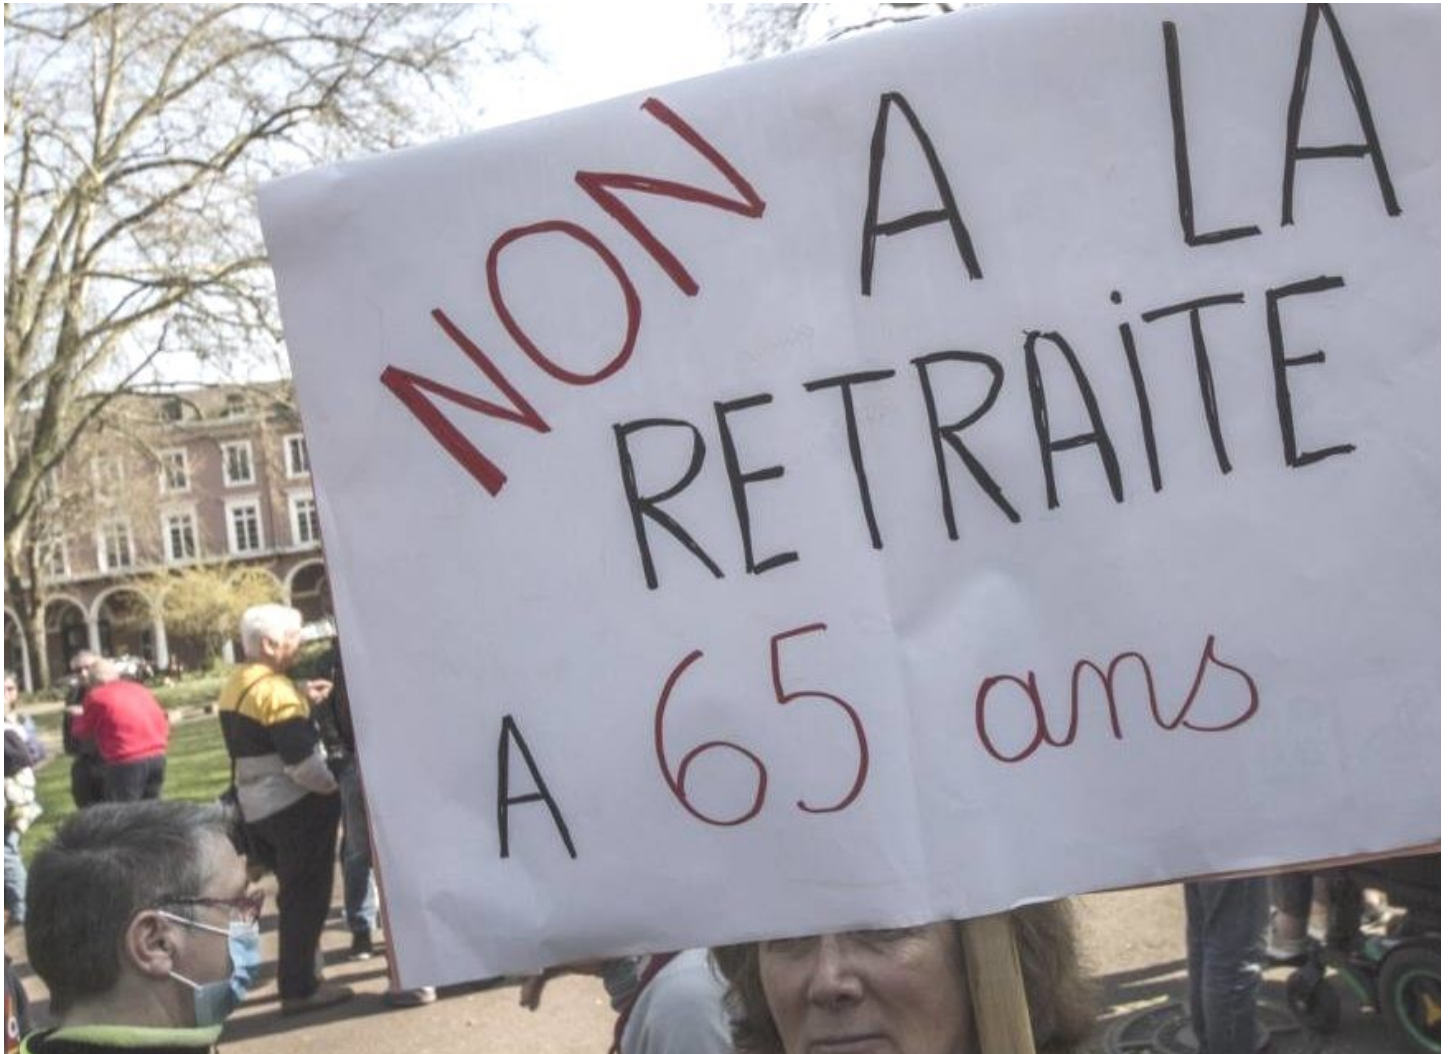 NON A LA
RETRAiTE
A 65 ans